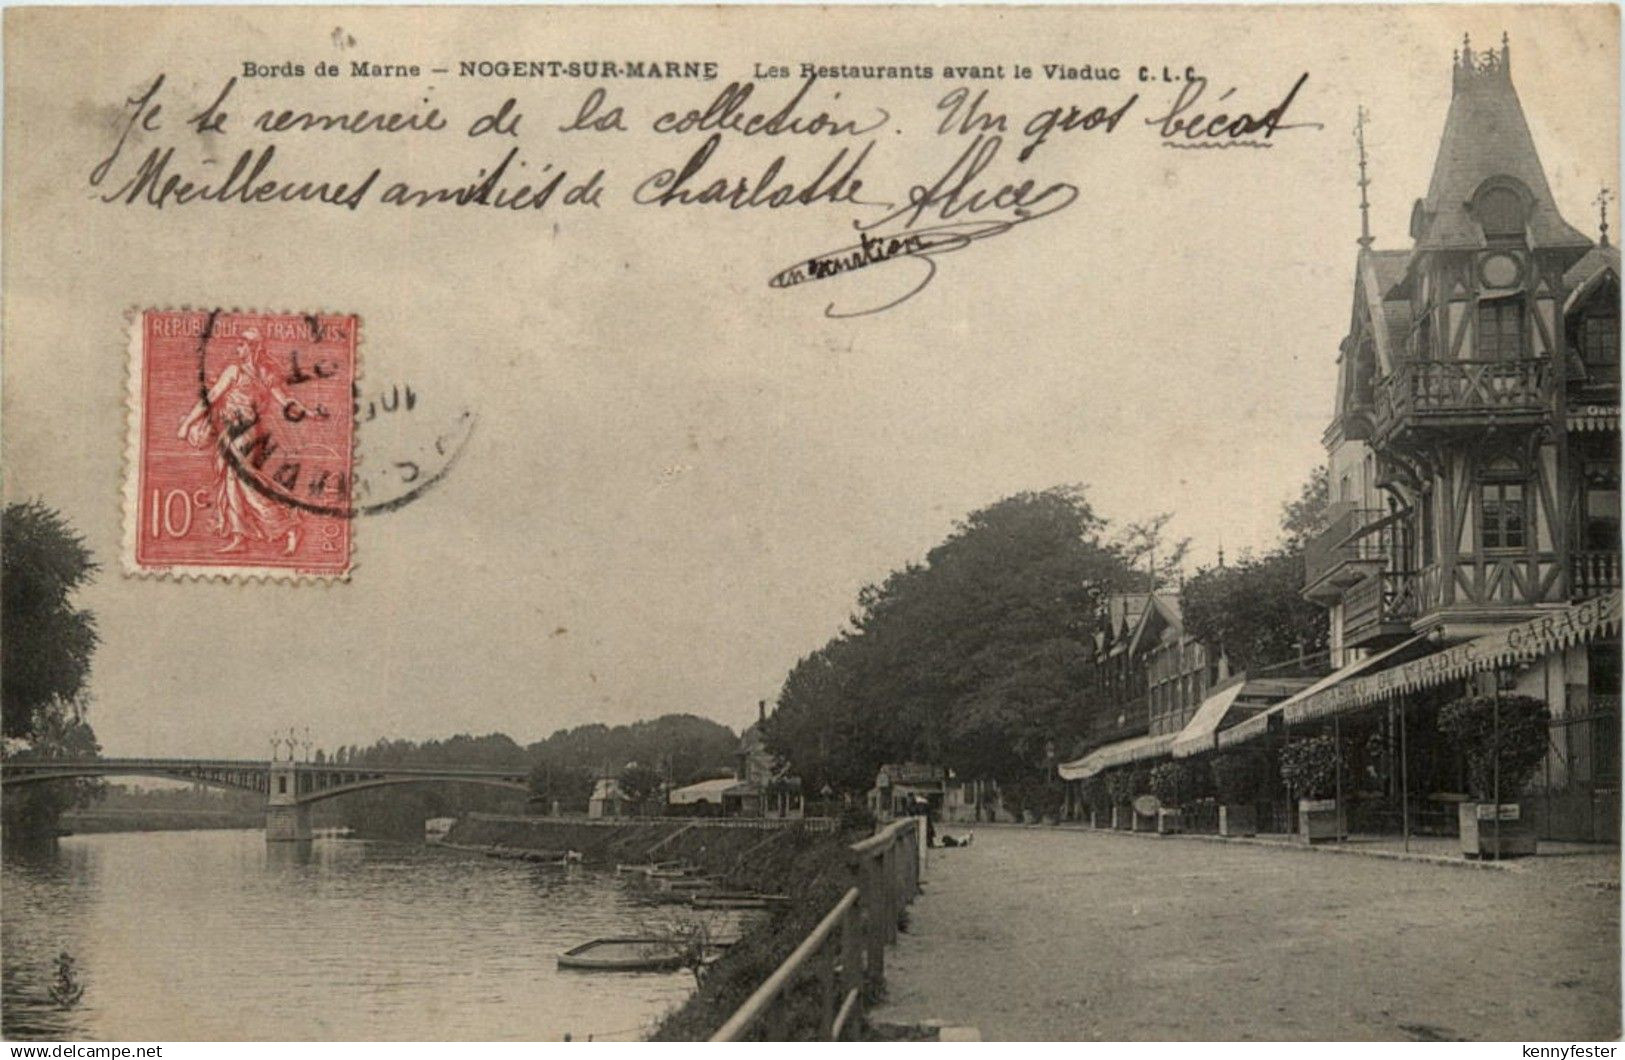 Bords de Marne — NOGENT-SUR-MARNE Les Restaurants avant le Viaduc C.L.C.
Je te remercie de la collection. Un gros bécot
Meilleures amitiés de Charlotte Alice
en
REPUBLIQUE FRANÇAISE
10c
PO
MARNE
S.
10
VIADUC GARAGE
© www.delcampe.net
kennyfester